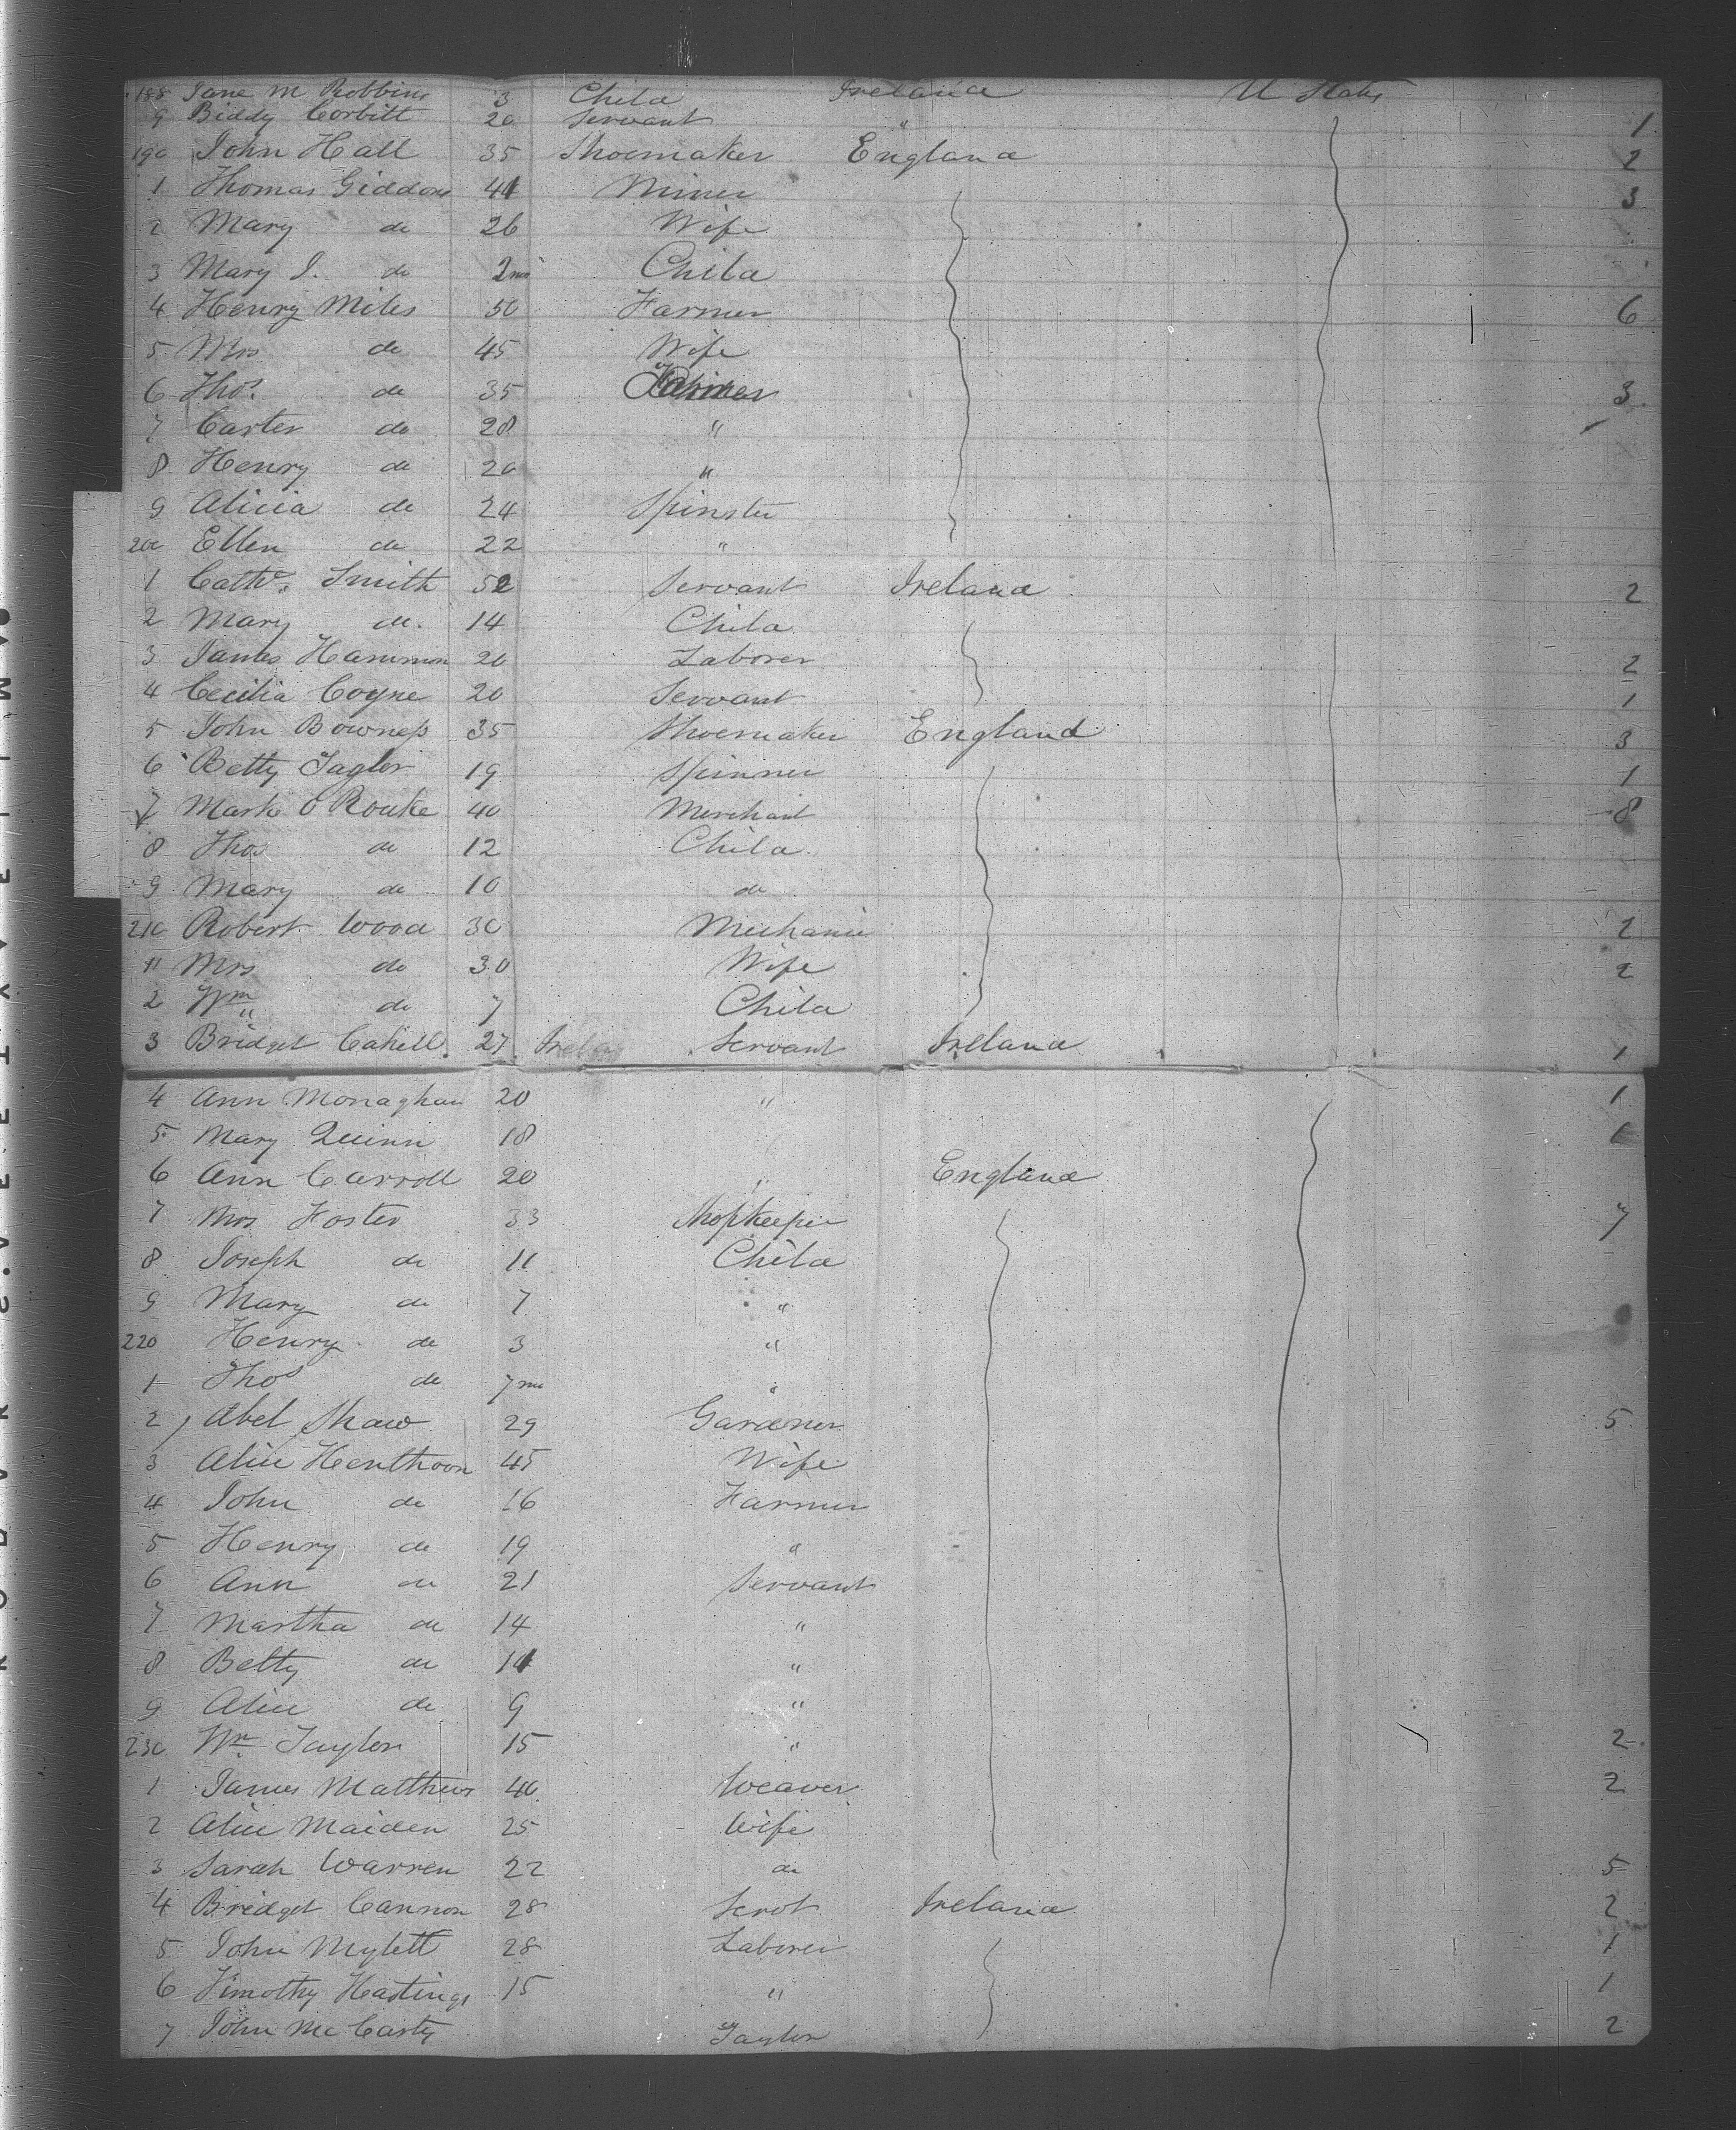 188 Jane M Robbins 3 Child Ireland U States
9 Biddy Corbitt 20 Servant " 1
190 John Hall 35 Shoemaker England 2
1 Thomas Giddons 41 Miner 3
2 Mary do 26 Wife
3 Mary J. do 2 mo Child
4 Henry Miles 50 Farmer 6
5 Mrs do 45 Wife
6 Thos. do 35 Farmer 3
7 Carter do 28 "
8 Henry do 20 "
9 Alicia do 24 Spinster
200 Ellen do 22 "
1 Cathe. Smith 52 Servant Ireland 2
2 Mary do. 14 Child
3 James Hammon 20 Laborer 2
4 Cecilia Coyne 20 Servant 1
5 John Bowness 35 Shoemaker England 3
6 Betty Taylor 19 Spinner 1
7 Mark O Rouke 40 Merchant 8
8 Thos do 12 Child
9 Mary do 10 do
210 Robert Wood 30 Mechanic 2
11 Mrs do 30 Wife 2
2 Wm do 7 Child
3 Bridget Cahill 27 Servant Ireland 1
4 Ann Monaghan 20 " 1
5 Mary Quinn 18
6 Ann Carroll 20 " England
7 Mrs Foster 33 Shopkeeper 7
8 Joseph do 11 Child
9 Mary do 7 "
220 Henry do 3 "
1 Thos do 7 mo "
2 Abel Shaw 29 Gardner 5
3 Alice Henthoorn 45 Wife
4 John do 16 Farmer
5 Henry do 19 "
6 Ann do 21 Servant
7 Martha do 14 "
8 Betty do 11 "
9 Alice do 9 "
230 Wm Taylor 15 " 2
1 James Matthews 40 Weaver 2
2 Alice Maiden 25 Wife
3 Sarah Warren 22 do 5
4 Bridget Cannon 28 Servt Ireland 2
5 John Mylett 28 Laborer 1
6 Timothy Hastings 15 " 1
7 John McCarty Taylor 2